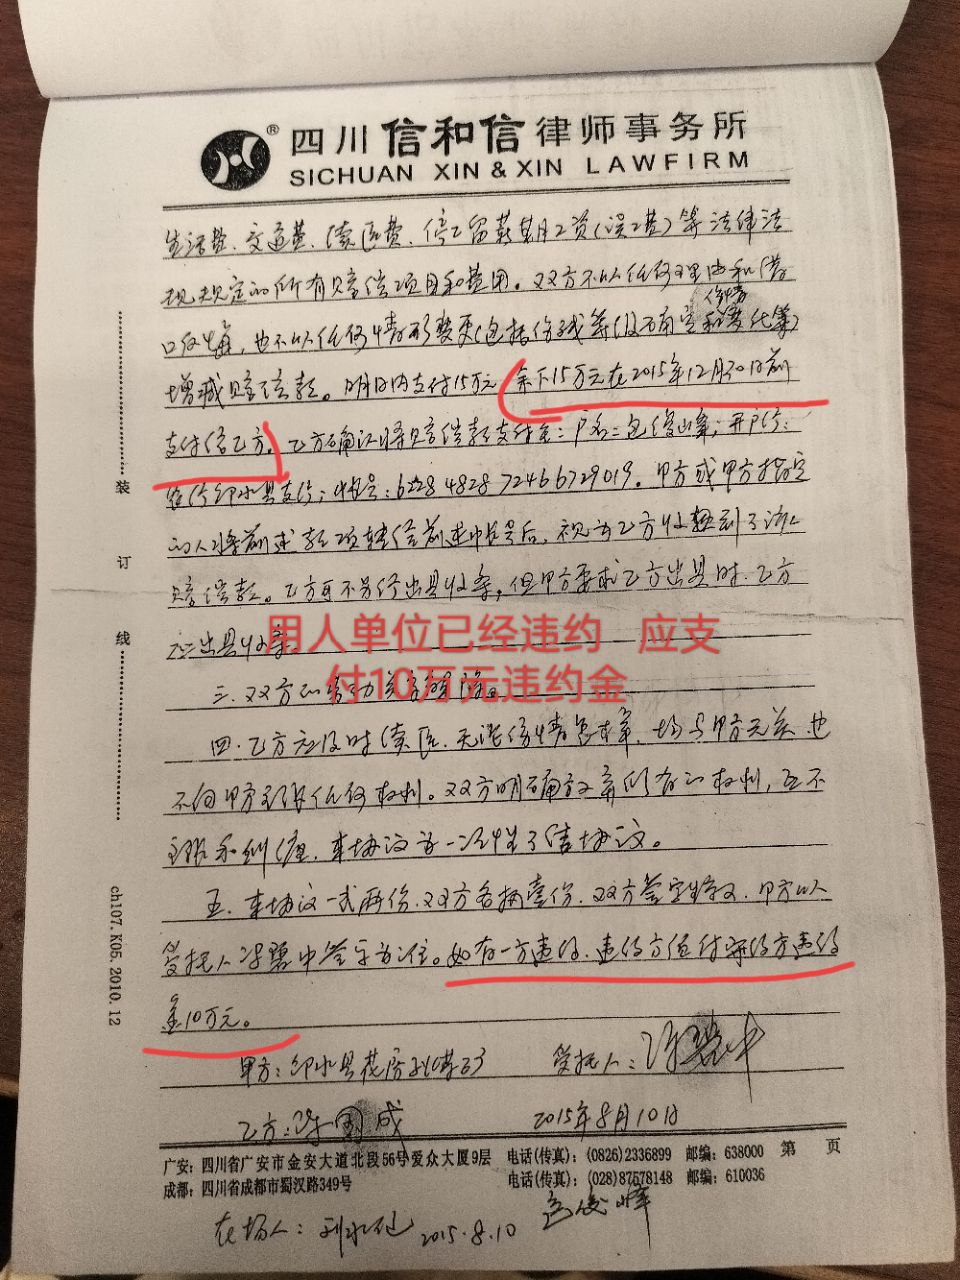 四川信和信律师事务所
SICHUAN XIN & XIN LAWFIRM
生活费、交通费、续医费、停工留薪期工资(误工费)等法律法
规规定的所有赔偿项目和费用。双方不以任何理由和借
口反悔,也不以任何情形变更(包括伤残等级确定和伤情变化等)
增减赔偿款。明日内支付15万元 余下15万元在2015年12月30日前
支付给乙方。乙方确认将赔偿款支付至:户名:包俊峰;开户行:
农行邻水县支行;帐号:6228 4828 7246 6729019。甲方或甲方指定
的人将前述款项转给前述帐号后,视为乙方收到了该
赔偿款。乙方可不另行出具收条,但甲方要求乙方出具时,乙方
应出具收条
用人单位已经违约 应支
付10万元违约金
三、双方的劳动关系解除。
四、乙方应及时续医,无论伤情怎样,均与甲方无关也
不向甲方主张任何权利。双方明确放弃所有的权利,互不
主张和纠缠,本协议为一次性了结协议。
五、本协议一式两份,双方各执壹份,双方签字生效,甲方以
受托人 中签字为准。如有一方违约,违约方应付守约方违约
金10万元。
甲方:邻水县花房 受托人:
乙方:陈国成 2015年8月10日
装
订
线
ch107.K05.2010.12
广安:四川省广安市金安大道北段56号爱众大厦9层 电话(传真):(0826)2336899 邮编:638000 第 页
成都:四川省成都市蜀汉路349号 电话(传真):(028)87578148 邮编:610036
包俊峰
在场人: 2015.8.10